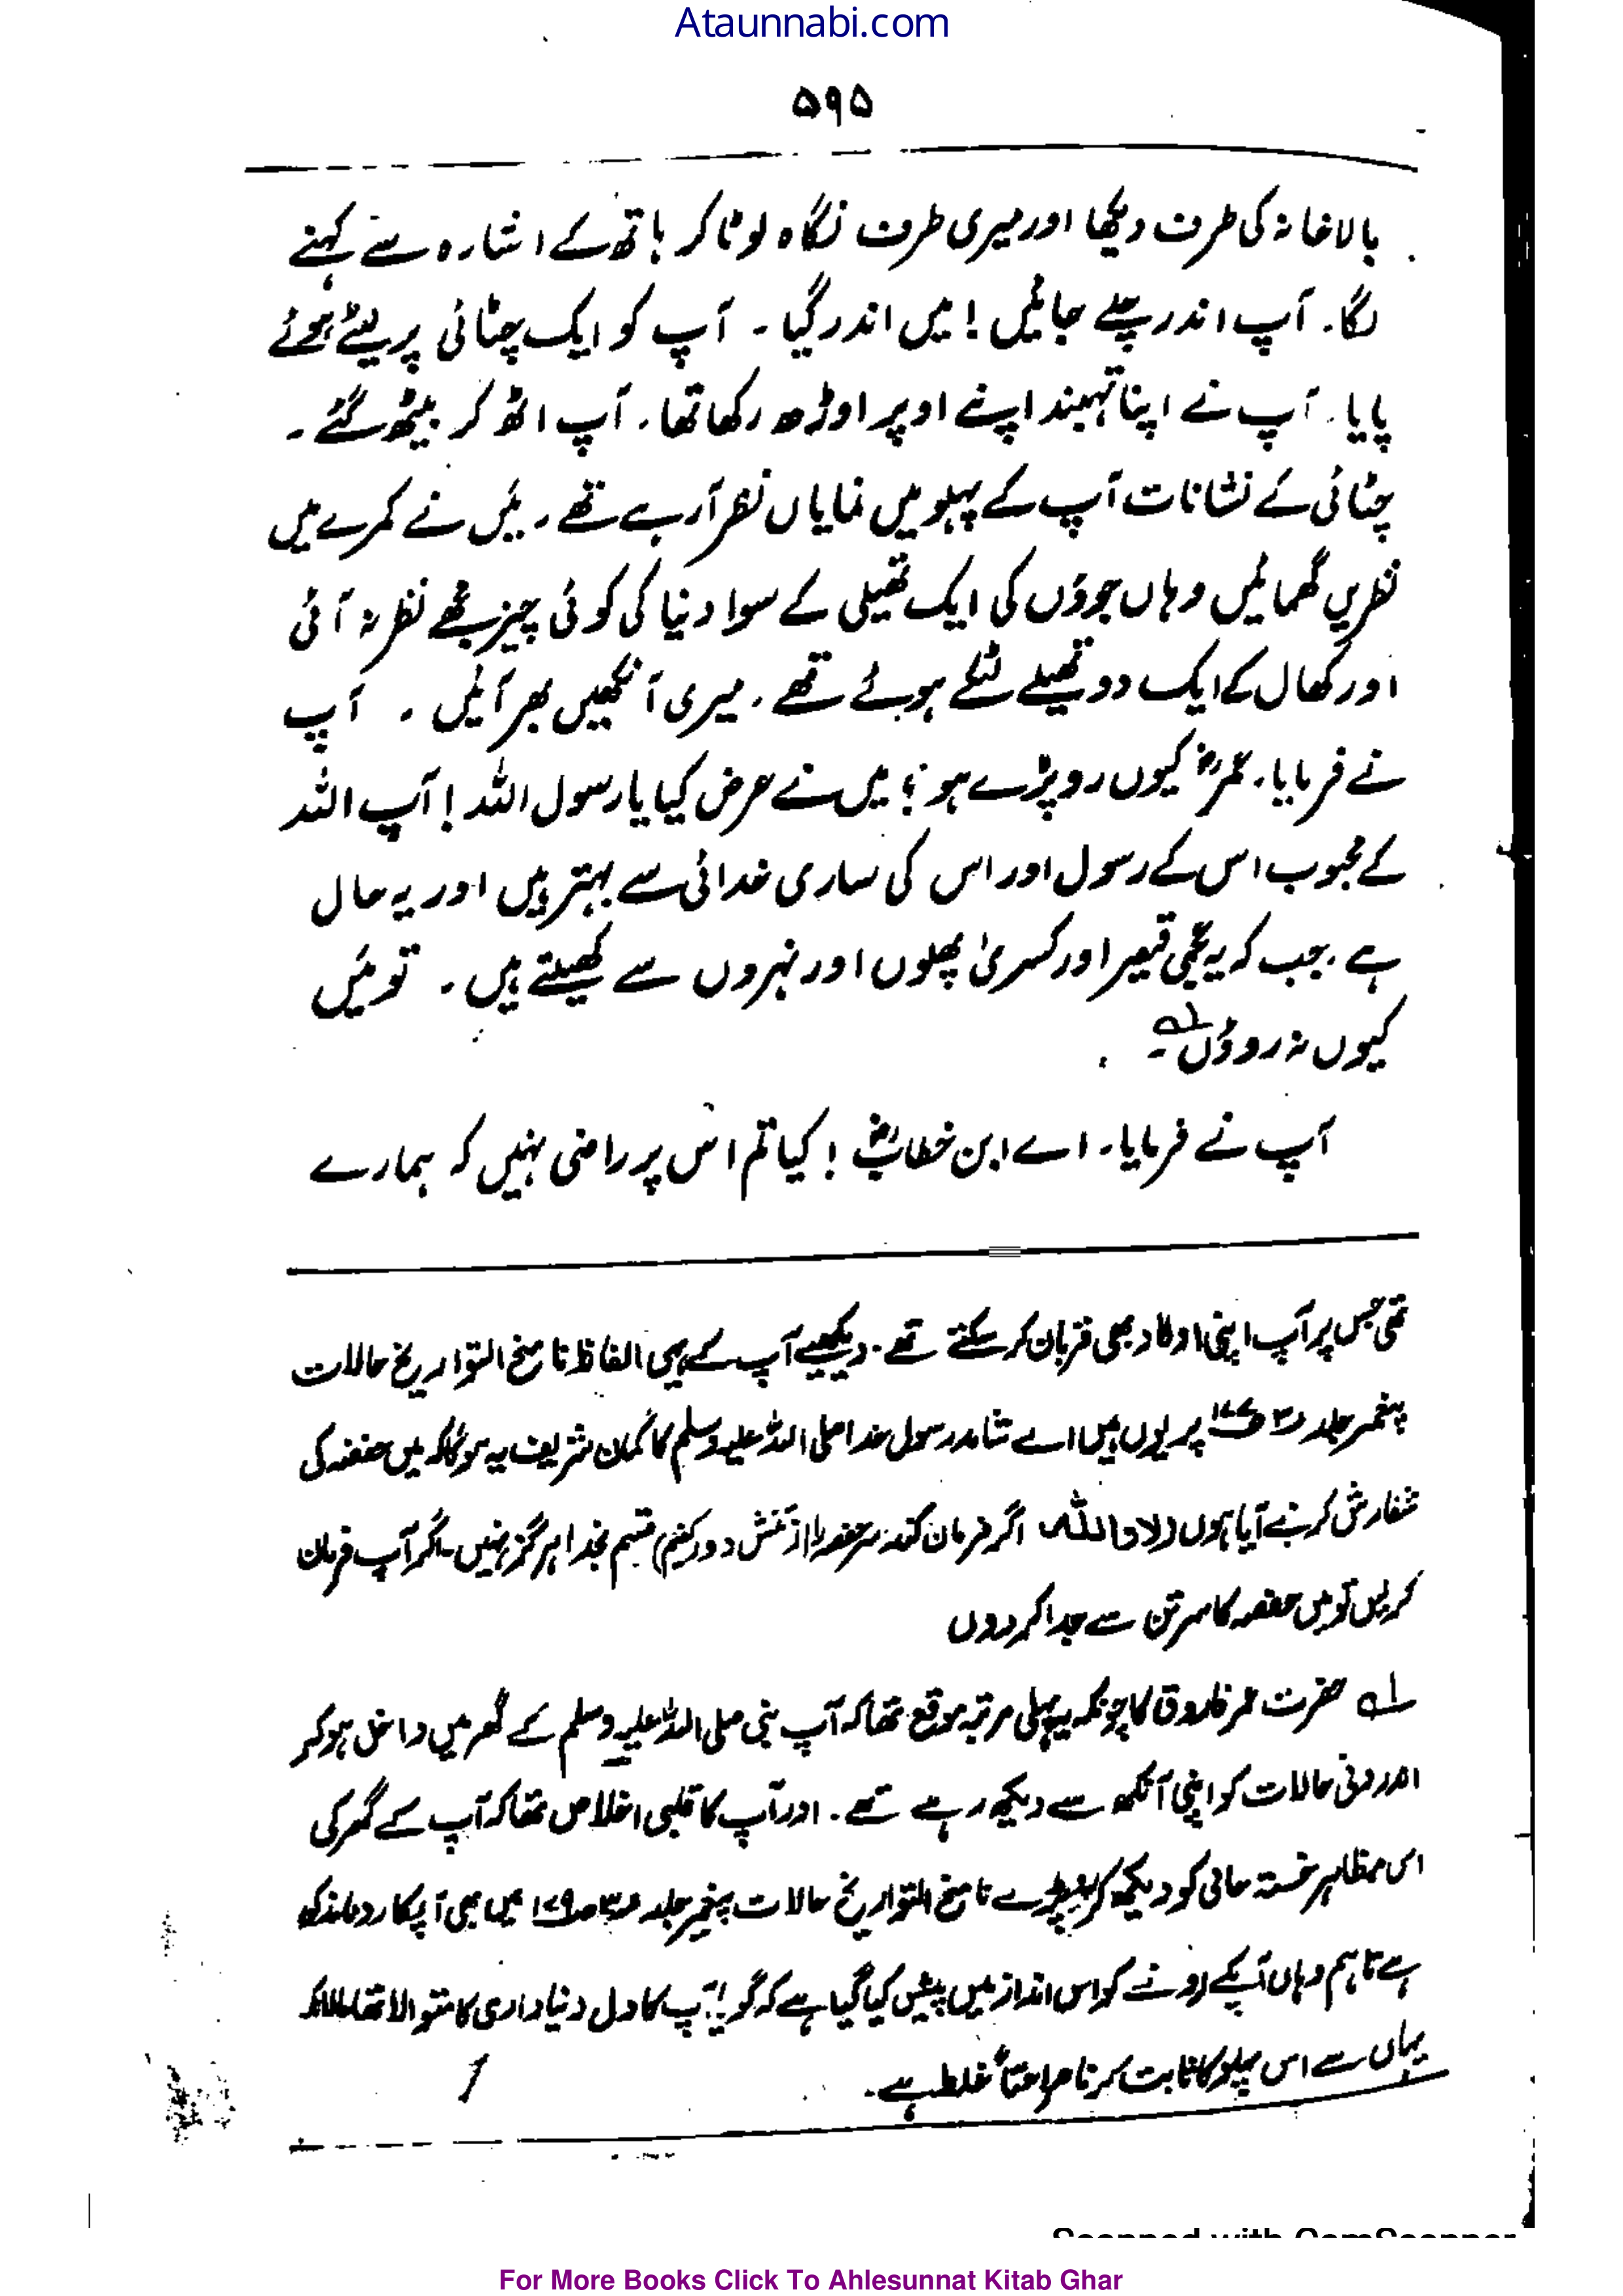 Ataunnabi.com
۵۹۵
بالاخانہ کی طرف دیکھا اور میری طرف نگاہ لوٹا کر ہاتھ کے اشارہ سے کہنے
لگا۔ آپ اندر چلے جائیں! میں اندر گیا۔ آپ کو ایک چٹائی پر لیٹے ہوئے
پایا۔ آپ نے اپنا تہبند اپنے اوپر اوڑھ رکھا تھا۔ آپ اٹھ کر بیٹھ گئے۔
چٹائی کے نشانات آپ کے پہلو میں نمایاں نظر آرہے تھے۔ میں نے کمرے میں
نظریں گھمائیں وہاں جوؤں کی ایک تھیلی کے سوا دنیا کی کوئی چیز مجھے نظر نہ آئی
اور کھال کے ایک دو تھیلے لٹکے ہوئے تھے۔ میری آنکھیں بھر آئیں۔ آپ
نے فرمایا۔ عمرؓ کیوں رو پڑے ہو؟ میں نے عرض کیا یا رسول اللہ! آپ اللہ
کے محبوب اس کے رسول اور اس کی ساری خدائی سے بہتر ہیں اور یہ حال
ہے۔ جب کہ یہ عجمی قیصر اور کسریٰ پھلوں اور نہروں سے کھیلتے ہیں۔ تو میں
کیوں نہ روؤں۔ لہ
آپ نے فرمایا۔ اے ابن خطابؓ! کیا تم اس پر راضی نہیں کہ ہمارے
تھی جس پر آپ اپنی اولاد بھی قربان کر سکتے تھے۔ دیکھیے آپ کے یہی الفاظ ناسخ التواریخ حالات
پیغمبر جلد ۳ پر یوں ہیں اے شاہد رسول خدا صلی اللہ علیہ وسلم کا گمان شریف یہ ہوگا کہ میں حفصہ کی
سفارش کرنے آیا ہوں (لا واللہ اگر فرمان کند سر حفصہ را از تنش دور کنم) قسم بخدا ہرگز نہیں۔ اگر آپ فرمان
کریں تو میں حفصہ کا سر تن سے جدا کر دوں
لہ حضرت عمر فاروق کا چونکہ یہ پہلی مرتبہ موقع تھا کہ آپ نبی صلی اللہ علیہ وسلم کے گھر میں داخل ہو کر
اندرونی حالات کو اپنی آنکھ سے دیکھ رہے تھے۔ اور آپ کا قلبی اخلاص تھا کہ آپ کے گھر کی
اس بظاہر خستہ حالی کو دیکھ کر رو پڑے ناسخ التواریخ حالات پیغمبر جلد ۳ ص ۱۷۹ میں بھی آپکا رونا مذکور
ہے تاہم وہاں آپکے رونے کو اس انداز میں پیش کیا گیا ہے کہ گویا آپ کا دل دنیا داری کا متوالا تھا حالانکہ
یہاں سے اس پہلو کا ثابت کرنا صراحتاً غلط ہے۔
For More Books Click To Ahlesunnat Kitab Ghar